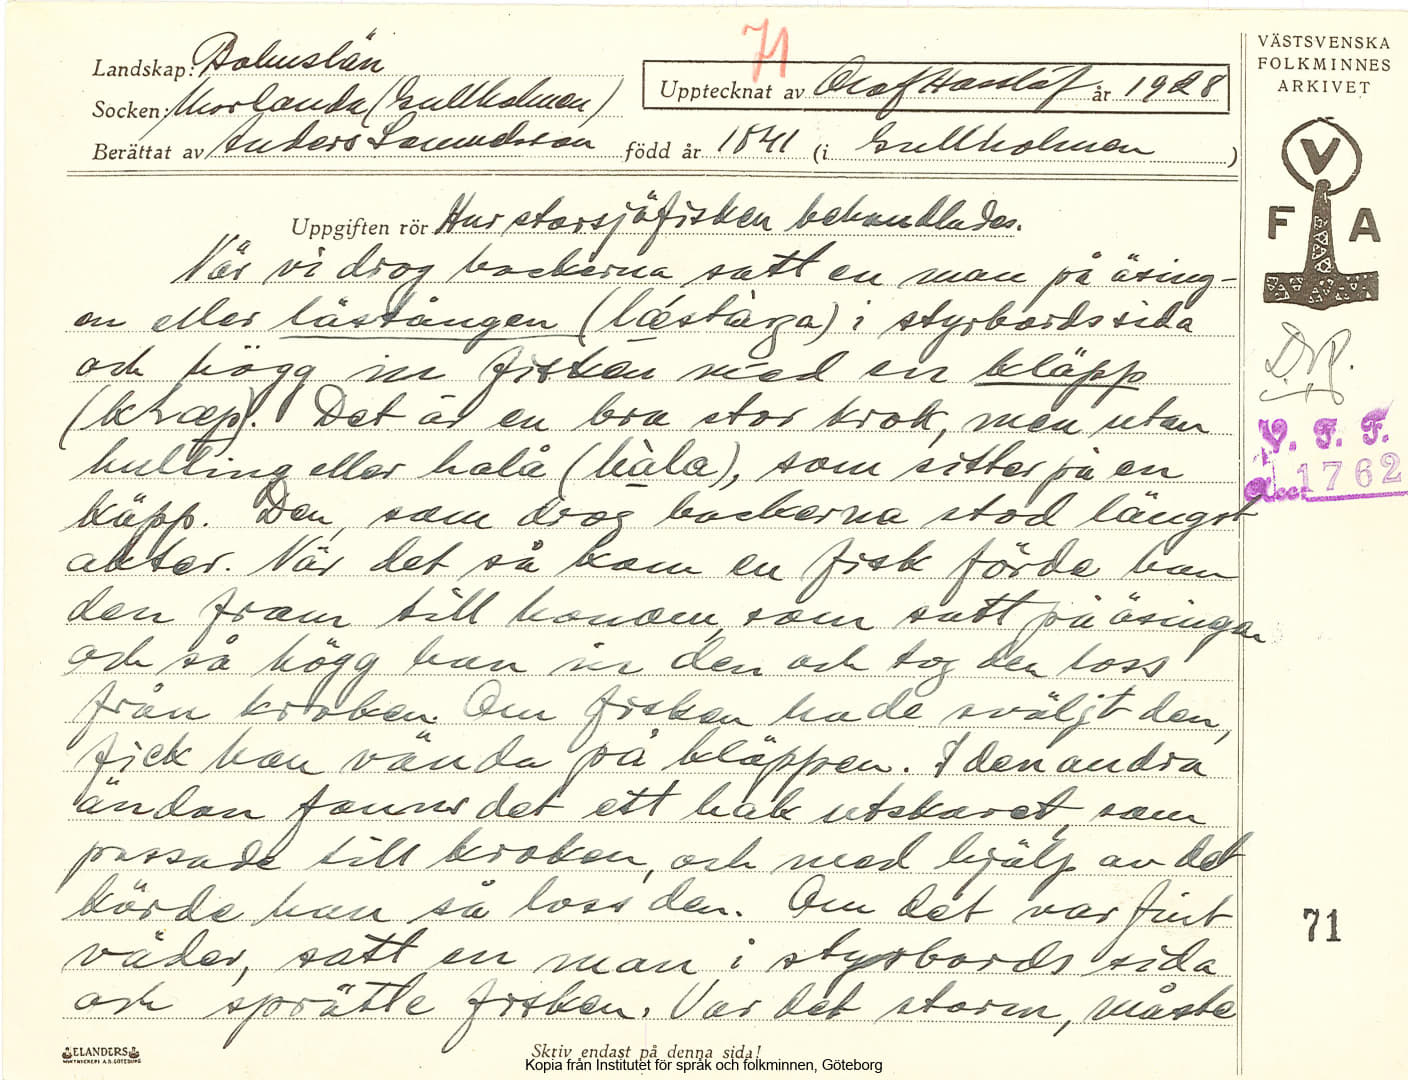 71
Landskap: Bohuslän
Socken: Morlanda (Gullholmen)
Upptecknat av Olof Hasslöf år 1928
Berättat av Anders Samuelsson född år 1841 (i Gullholmen)
VÄSTSVENSKA
FOLKMINNES
ARKIVET
V
F A
Uppgiften rör Hur storsjöfisken behandlades.
När vi drog backorna satt en man på äsing-
en eller lästången (læstàŋa) i styrbords sida
och högg in fisken med en kläpp
(kLæp). Det är en bra stor krok, men utan
hulling eller halå (hàla), som sitter på en
käpp. Den, som drog backorna stod längst
akter. När det så kom en fisk förde han
den fram till honom, som satt på äsingen
och så högg han in den och tog den loss
från kroken. Om fisken hade sväljt den,
fick han vända på kläppen. I den andra
ändan fanns det ett hak utskaret, som
passade till kroken, och med hjälp av det
körde han så loss den. Om det var fint
väder, satt en man i styrbords sida
och sprätte fisken. Var det storm, måste
V. F. F.
Acc. 1762
71
ELANDERS
Skriv endast på denna sida!
Kopia från Institutet för språk och folkminnen, Göteborg